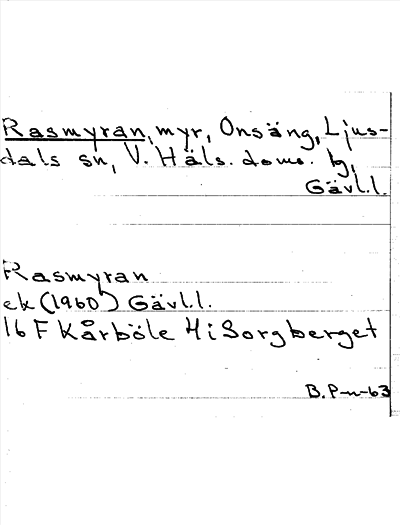 Rasmyran, myr, Onsäng, Ljus-
dals sn, V. Häls. doms. b,
Gävl.l.
Rasmyran
ek (1960) Gävl.l.
16 F Kårböle 4 i Sorgberget
B. P-n-63